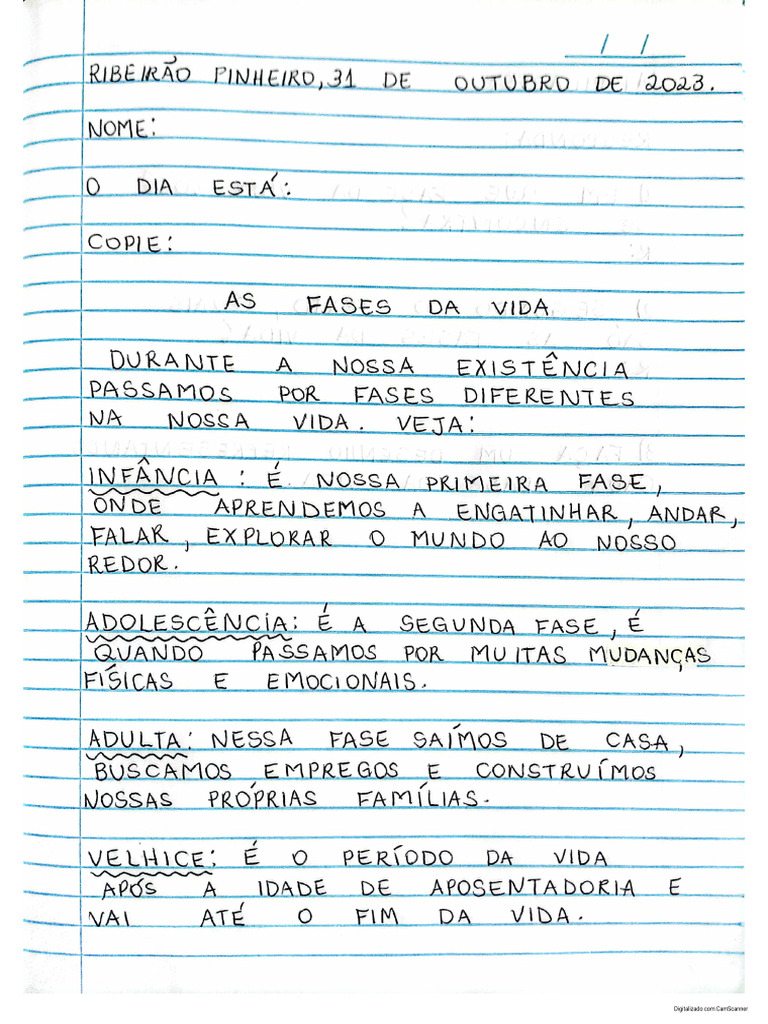 / /
RIBEIRÃO PINHEIRO, 31 DE OUTUBRO DE 2023.
NOME:
O DIA ESTÁ:
COPIE:
AS FASES DA VIDA
DURANTE A NOSSA EXISTÊNCIA
PASSAMOS POR FASES DIFERENTES
NA NOSSA VIDA. VEJA:
INFÂNCIA: É NOSSA PRIMEIRA FASE,
ONDE APRENDEMOS A ENGATINHAR, ANDAR,
FALAR, EXPLORAR O MUNDO AO NOSSO
REDOR.
ADOLESCÊNCIA: É A SEGUNDA FASE, É
QUANDO PASSAMOS POR MUITAS MUDANÇAS
FÍSICAS E EMOCIONAIS.
ADULTA: NESSA FASE SAÍMOS DE CASA,
BUSCAMOS EMPREGOS E CONSTRUÍMOS
NOSSAS PRÓPRIAS FAMÍLIAS.
VELHICE: É O PERÍODO DA VIDA
APÓS A IDADE DE APOSENTADORIA E
VAI ATÉ O FIM DA VIDA.
Digitalizado com CamScanner